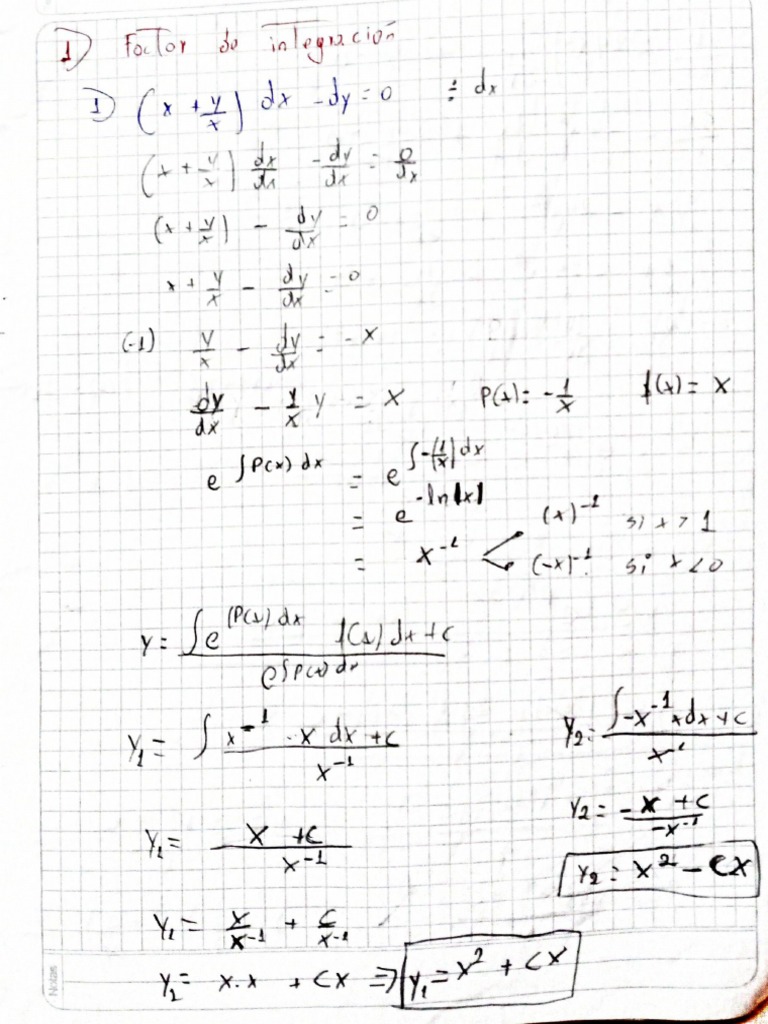 1) Factor de integración
1) (x + y/x) dx - dy = 0 ÷ dx
(x + y/x) dx/dx - dy/dx = 0/dx
(x + y/x) - dy/dx = 0
x + y/x - dy/dx = 0
(-1) y/x - dy/dx = -x
dy/dx - 1/x y = x P(x) = -1/x f(x) = x
e^∫P(x) dx = e^∫-(1/x) dx
= e^-ln|x|
= x^-1 (x)^-1 si x > 1
(-x)^-1 si x < 0
y = ∫e^∫P(x) dx f(x) dx + c / e^∫P(x) dx
y₁ = ∫ x^-1 · x dx + c / x^-1
y₁ = x + c / x^-1
y₁ = x/x^-1 + c/x^-1
y₂ = x · x + cx ⇒ y₁ = x² + cx
y₂ = ∫-x^-1 x dx + c / x^-1
y₂ = -x + c / -x^-1
y₂ = x² - cx
Notas